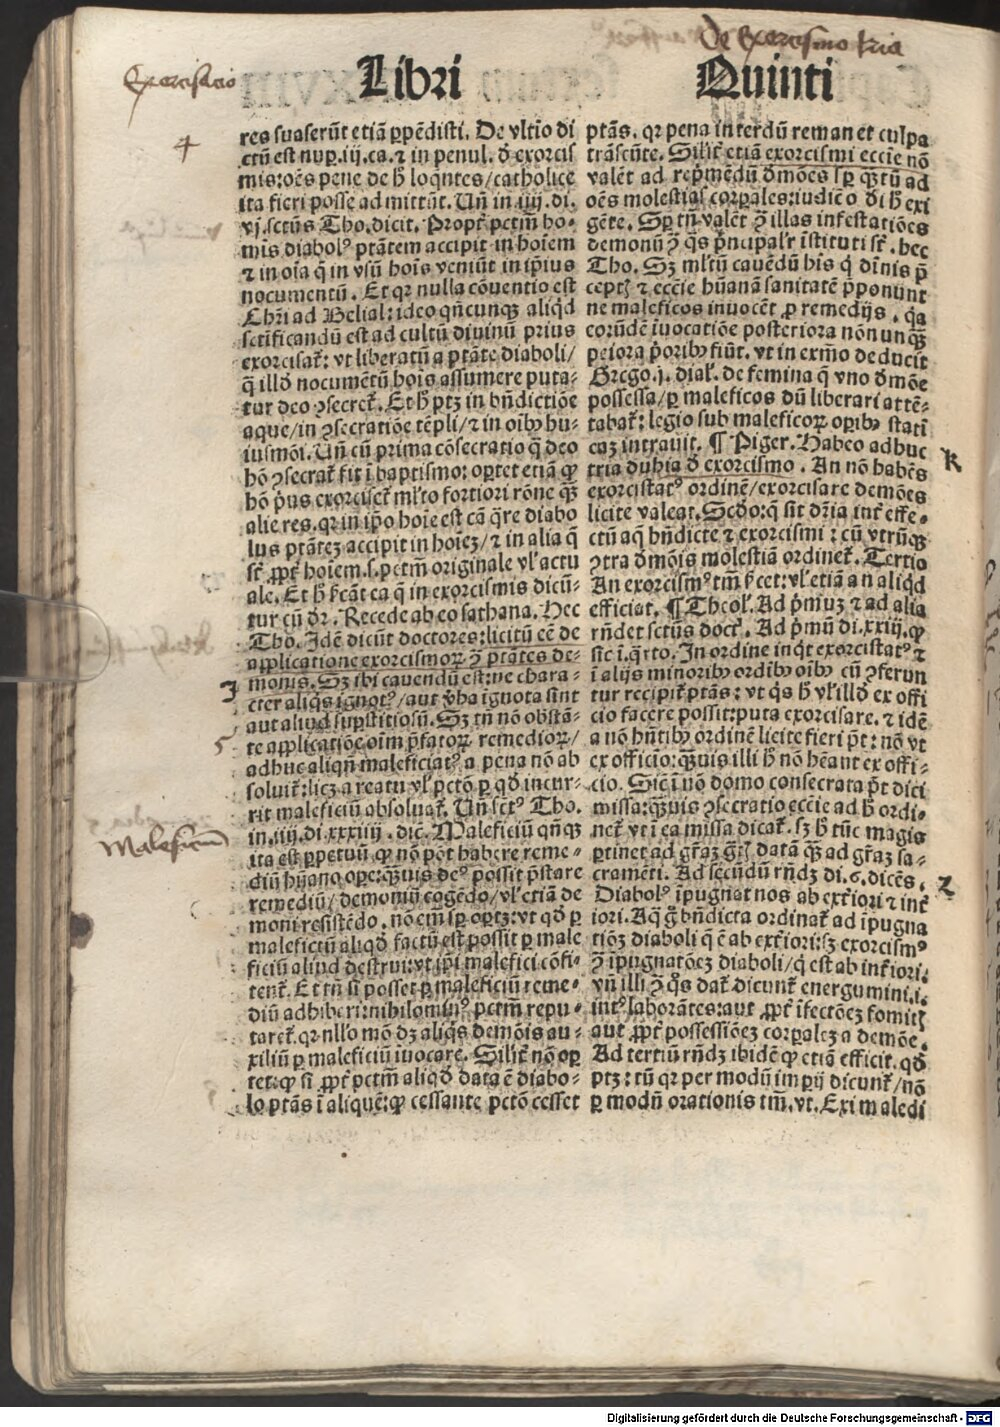 De Exorcismo tria
Exorcisacio
Libri Quinti
4
res suaserūt etiā ꝑpēdisti. De vltīo di
ctū est nuꝑ.iij.ca.⁊ in penul. đ exorcis
mis:oēs pene de ħ loqntes/catholice
ita fieri posse ad mittūt. Uñ in .iiij. di.
vj. sctūs Tho. dicit. Propt̄ pctm̄ ho-
mis diabolꝰ ptātem accipit in hoīem
⁊ in oīa q̄ in vsū hoīs veniūt in ip̄ius
nocumentū. Et qꝛ nulla cōuentio est
Chrī ad Belial: ideo qn̄cunqꝫ aliqđ
sctīficandū est ad cultū diuinū prius
exorcisat̄: vt liberatū a ptāte diaboli/
q̄ illđ nocumētū hoīs assumere puta-
tur deo ꝯsecret̄. Et ħ ptꝫ in bn̄dictiōe
aque/in ꝯsecratiōe tēpli/⁊ in oībꝰ hu-
iusmōi. Uñ cū prima cōsecratio q̄ deo
hō ꝯsecrat̄ fit ī baptismo: oꝑtet etiā ꝙ
hō pꝰus exorciset̄ ml̄to fortiori rōne qꝫ
alie res.qꝛ in ip̄o hoīe est cā q̄re diabo
lus ptātēꝫ accipit in hoīeꝫ/⁊ in alia q̄
st̄ ꝓpt̄ hoīem.s.pctm̄ originale vl̓ actu
ale. Et ħ sc̄ant ea q̄ in exorcismis dicū-
tur cū đr. Recede ab eo sathana. Hec
Tho. Idē dicūt doctores: licitū eē de
applicatione exorcismoꝝ ꝯ̄ ptātes de-
3
monis. Sꝫ ibi cauendū est: ne chara-
cter aliqs ignotꝰ/aut v̄ba ignota sint
aut aliud suꝑstitiosū. Sꝫ tn̄ nō obstā-
5
te applicatiōe oīm p̄fatoꝝ remedioꝝ/
adhuc aliqn̄ maleficiatꝰ a pena nō ab
soluit̄: licꝫ a reatu vl̓ pctō ꝑ qđ incur-
rit maleficiū absoluat̄. Uñ sctꝰ Tho.
Maleficium
in.iiij.di.xxxiiij. dic. Maleficiū qn̄qꝫ
ita est ꝑpetuū ꝙ nō pōt habere reme-
diū hūano oꝑe: qꝫuis deꝰ possit p̄stare
remediū/demoniū cogēdo/vl̓ etiā de
moni resistēdo. nō em̄ sꝑ oꝑtꝫ: vt qđ ꝑ
maleficiū aliqđ factū est possit ꝑ male
ficiū aliud destrui: vt ip̄i malefici cōfi-
tent̄. Et tn̄ si posset ꝑ maleficiū reme-
diū adhiberi: nihilominꝰ pctm̄ repu-
taret̄.qꝛ nl̄lo mō dꝫ aliqs demōis au-
xiliū ꝑ maleficiū īuocare. Silit̄ nō oꝑ
tet: ꝙ si ꝓpt̄ pctm̄ aliqđ data ē diabo-
lo ptās ī aliquē: ꝙ cessante pctō cesset
ptās. qꝛ pena interdū remanet culpa
trāseūte. Silit̄ etiā exorcismi ecc̄ie nō
valēt ad rep̄mēdū đmōes sꝑ qꝫtū ad
oēs molestias corꝑales: iudicio đi ħ exi
gēte. Sꝑ tn̄ valēt ꝯ̄ illas infestatiōes
demonū ꝯ̄ qs p̄ncipal̓r īstituti st̄. hec
Tho. Sꝫ ml̄tū cauēdū his q̄ dīnis p̄
ceptꝭ ⁊ ecc̄ie hūanā sanitatē p̄ponunt
ne maleficos inuocēt ꝓ remedijs. qa
eorūdē īuocatiōe posteriora nō nunqꝫ
peiora p̄oribꝰ fiūt. vt in exm̄o deducit
Grego.j. dial̓. de femina q̄ vno đmōe
possessa/ꝑ maleficos dū liberari attē-
tabat̄: legio sub maleficoꝝ oꝑibꝰ statī
eaꝫ intrauit. ¶ Piger. Habeo adhuc
K
tria dubia đ exorcismo. An nō habēs
exorcistatꝰ ordinē/exorcisare demōes
licite valeat. Scđo: q̄ sit dr̄ia int̄ effe-
ctū aq̄ bn̄dicte ⁊ exorcismi: cū vtrūqꝫ
ꝯtra đmōis molestiā ordinet̄. Tertio
An exorcismꝰ tm̄ sc̄et: vl̓ etiā an aliqđ
efficiat. ¶ Theol̓. Ad p̄muꝫ ⁊ ad alia
rn̄det sctūs doct̄. Ad p̄mū di.xxiij. ꝙ
sic ī.q̄rto. In ordine inqt exorcistatꝰ ⁊
ī alijs minoribꝰ ordībꝰ oībꝰ cū ꝯferun
tur recipit̄ ptās: vt qs ħ vl̓ illđ ex offi
cio facere possit: puta exorcisare. ⁊ idē
a nō hn̄tibꝰ ordinē licite fieri p̄t: nō vt
ex officio: qꝫuis illi ħ nō hēant ex offi-
cio. Sic̄ ī nō domo consecrata p̄t dici
missa: qꝫuis ꝯsecratio ecc̄ie ad ħ ordi-
net̄ vt ī ea missa dicat̄. sꝫ ħ tūc magis
ꝑtinet ad gr̄aꝫ gr̄tꝭ datā qꝫ ad gr̄aꝫ sa-
cramēti. Ad secūdū rn̄dꝫ di.6. dicēs.
2
Diabolꝰ īpugnat nos ab ext̄iori ⁊ int̄
iori. Aq̄ g̊ bn̄dicta ordinat̄ ad īpugna
tiōꝫ diaboli q̄ ē ab ext̄iori: sꝫ exorcismꝰ
ꝯ̄ īpugnatōeꝫ diaboli/q̄ est ab int̄iori.
vn̄ illi ꝯ̄ qs dat̄ dicunt̄ energumini.i.
intꝰ laborātes: aut ꝓpt̄ īfectōeꝫ fomitꝭ
aut ꝓpt̄ possessiōeꝫ corꝑaleꝫ a demōe.
Ad tertiū rn̄dꝫ ibidē ꝙ etiā efficit. qđ
ptꝫ: tū qꝛ per modū imperij dicunt̄/nō
ꝑ modū orationis tm̄. vt. Exi maledi
Digitalisierung gefördert durch die Deutsche Forschungsgemeinschaft - DFG